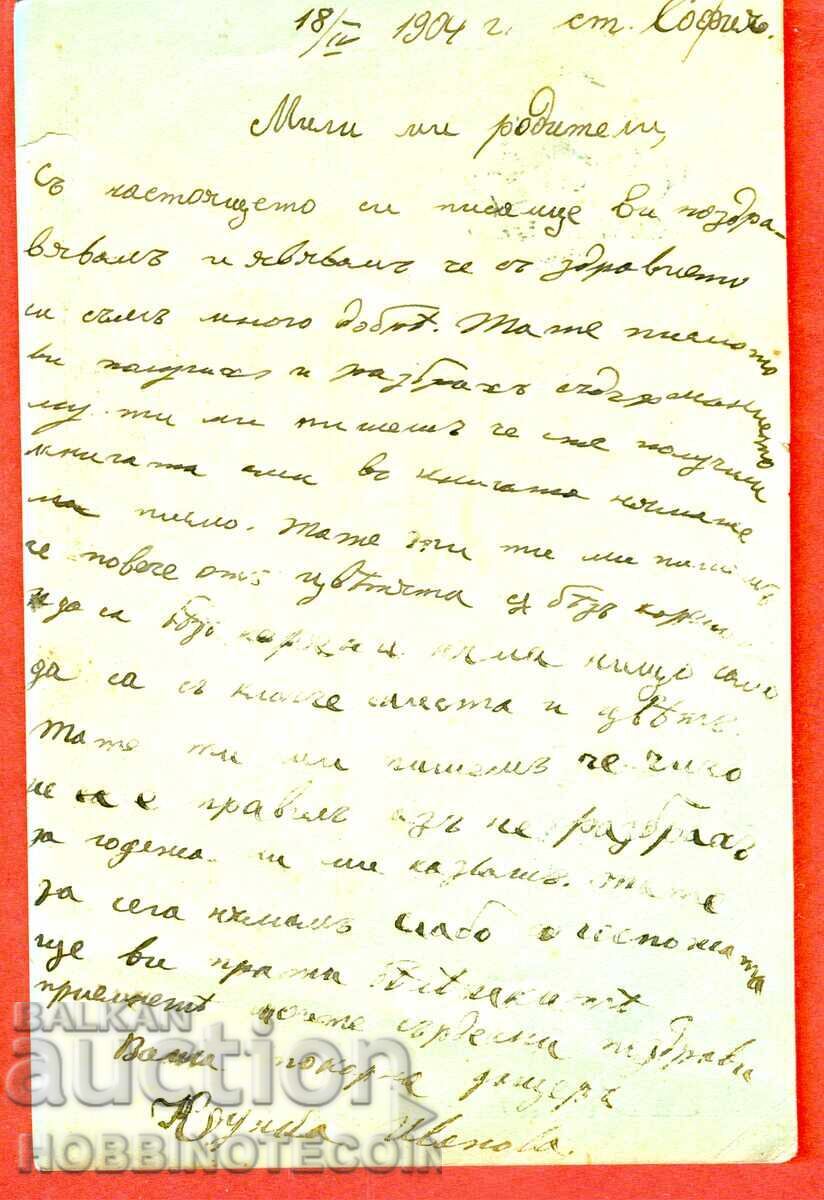 18/IV 1904 г. ст. София.
Мили ми родители,
Съ настоящето си писмице ви поздра-
вявамъ и явявамъ че съ здравието
си съмъ много добрѣ. Тате писмото
ви получихъ и разбрахъ съдържанието
му ти ми пишешъ че сте получили
книгата ами во книгата
писмо. Тате ти ми пишешъ
че повече отъ цвѣтята са безъ
и да са безъ няма нищо само
да са съ клонче листа и цвѣтъ.
Тате ти ми пишешъ че чичо
правилъ азъ не разбрахъ
за годежа ли ми казвашъ. тате
за сега нѣмамъ слабо
ще ви пратя
приемнетѣ моите сърдечни поздрави
Ваша покорна дъщеря
Иванова.
BALKAN
auction
HOBBINOTECOIN